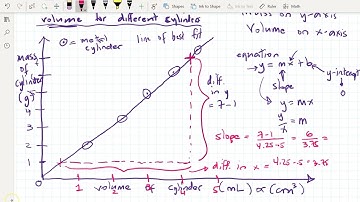 volume for different cylinder
mass on y-axis
Volume on x-axis
⊙ = metal cylinder
line of best fit
mass of cylinder (g)
4
3
2
1
diff. in y = 7-1
equation
y = mx + b
slope
y-intercept
y = mx
y/x = m
slope = 7-1 / 4.25-.5 = 6 / 3.75 =
diff. in x = 4.25-.5 = 3.75
1 volume 2 of 3 cylinder 4 5 (mL) or (cm³)